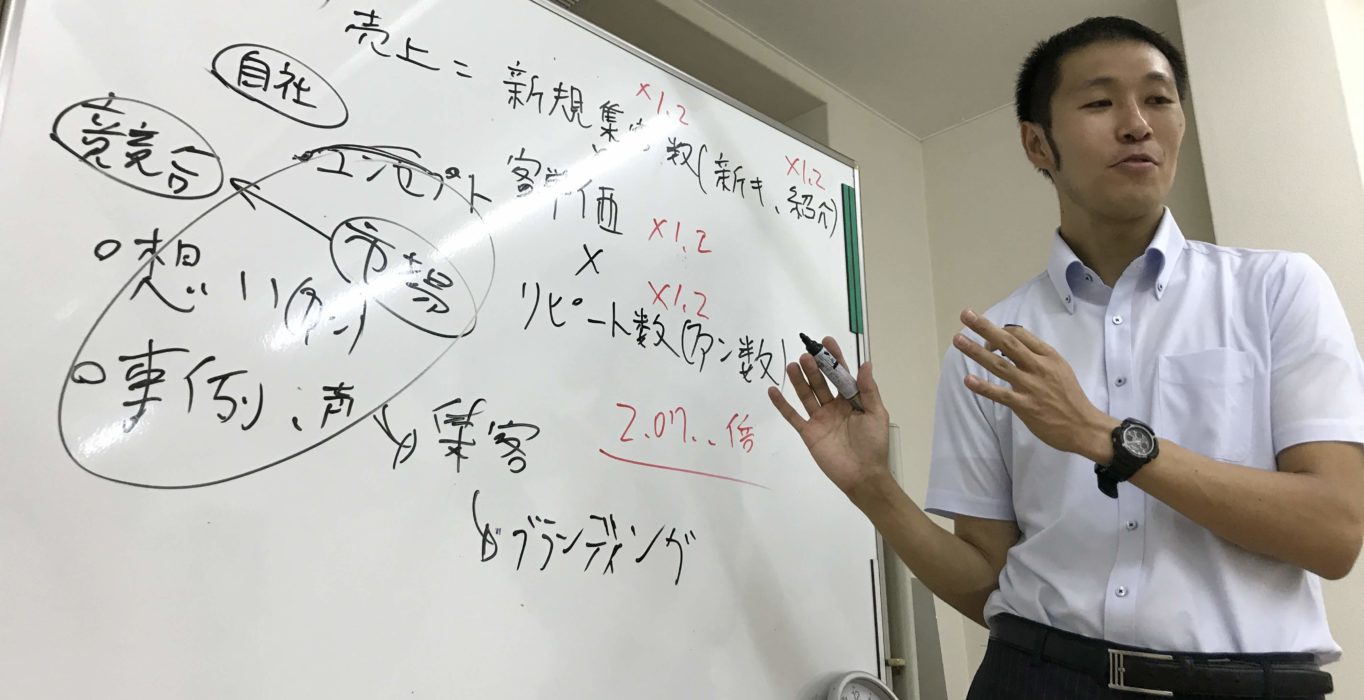 売上 = 新規集客数(新き、紹介)
×1.2
×1.2
×
客単価
×1.2
×
リピート数(ファン数)
×1.2
2.07..倍
自社
競合
市場
コンセプト
○想い(ファン)
○事例、声
集客
ブランディング